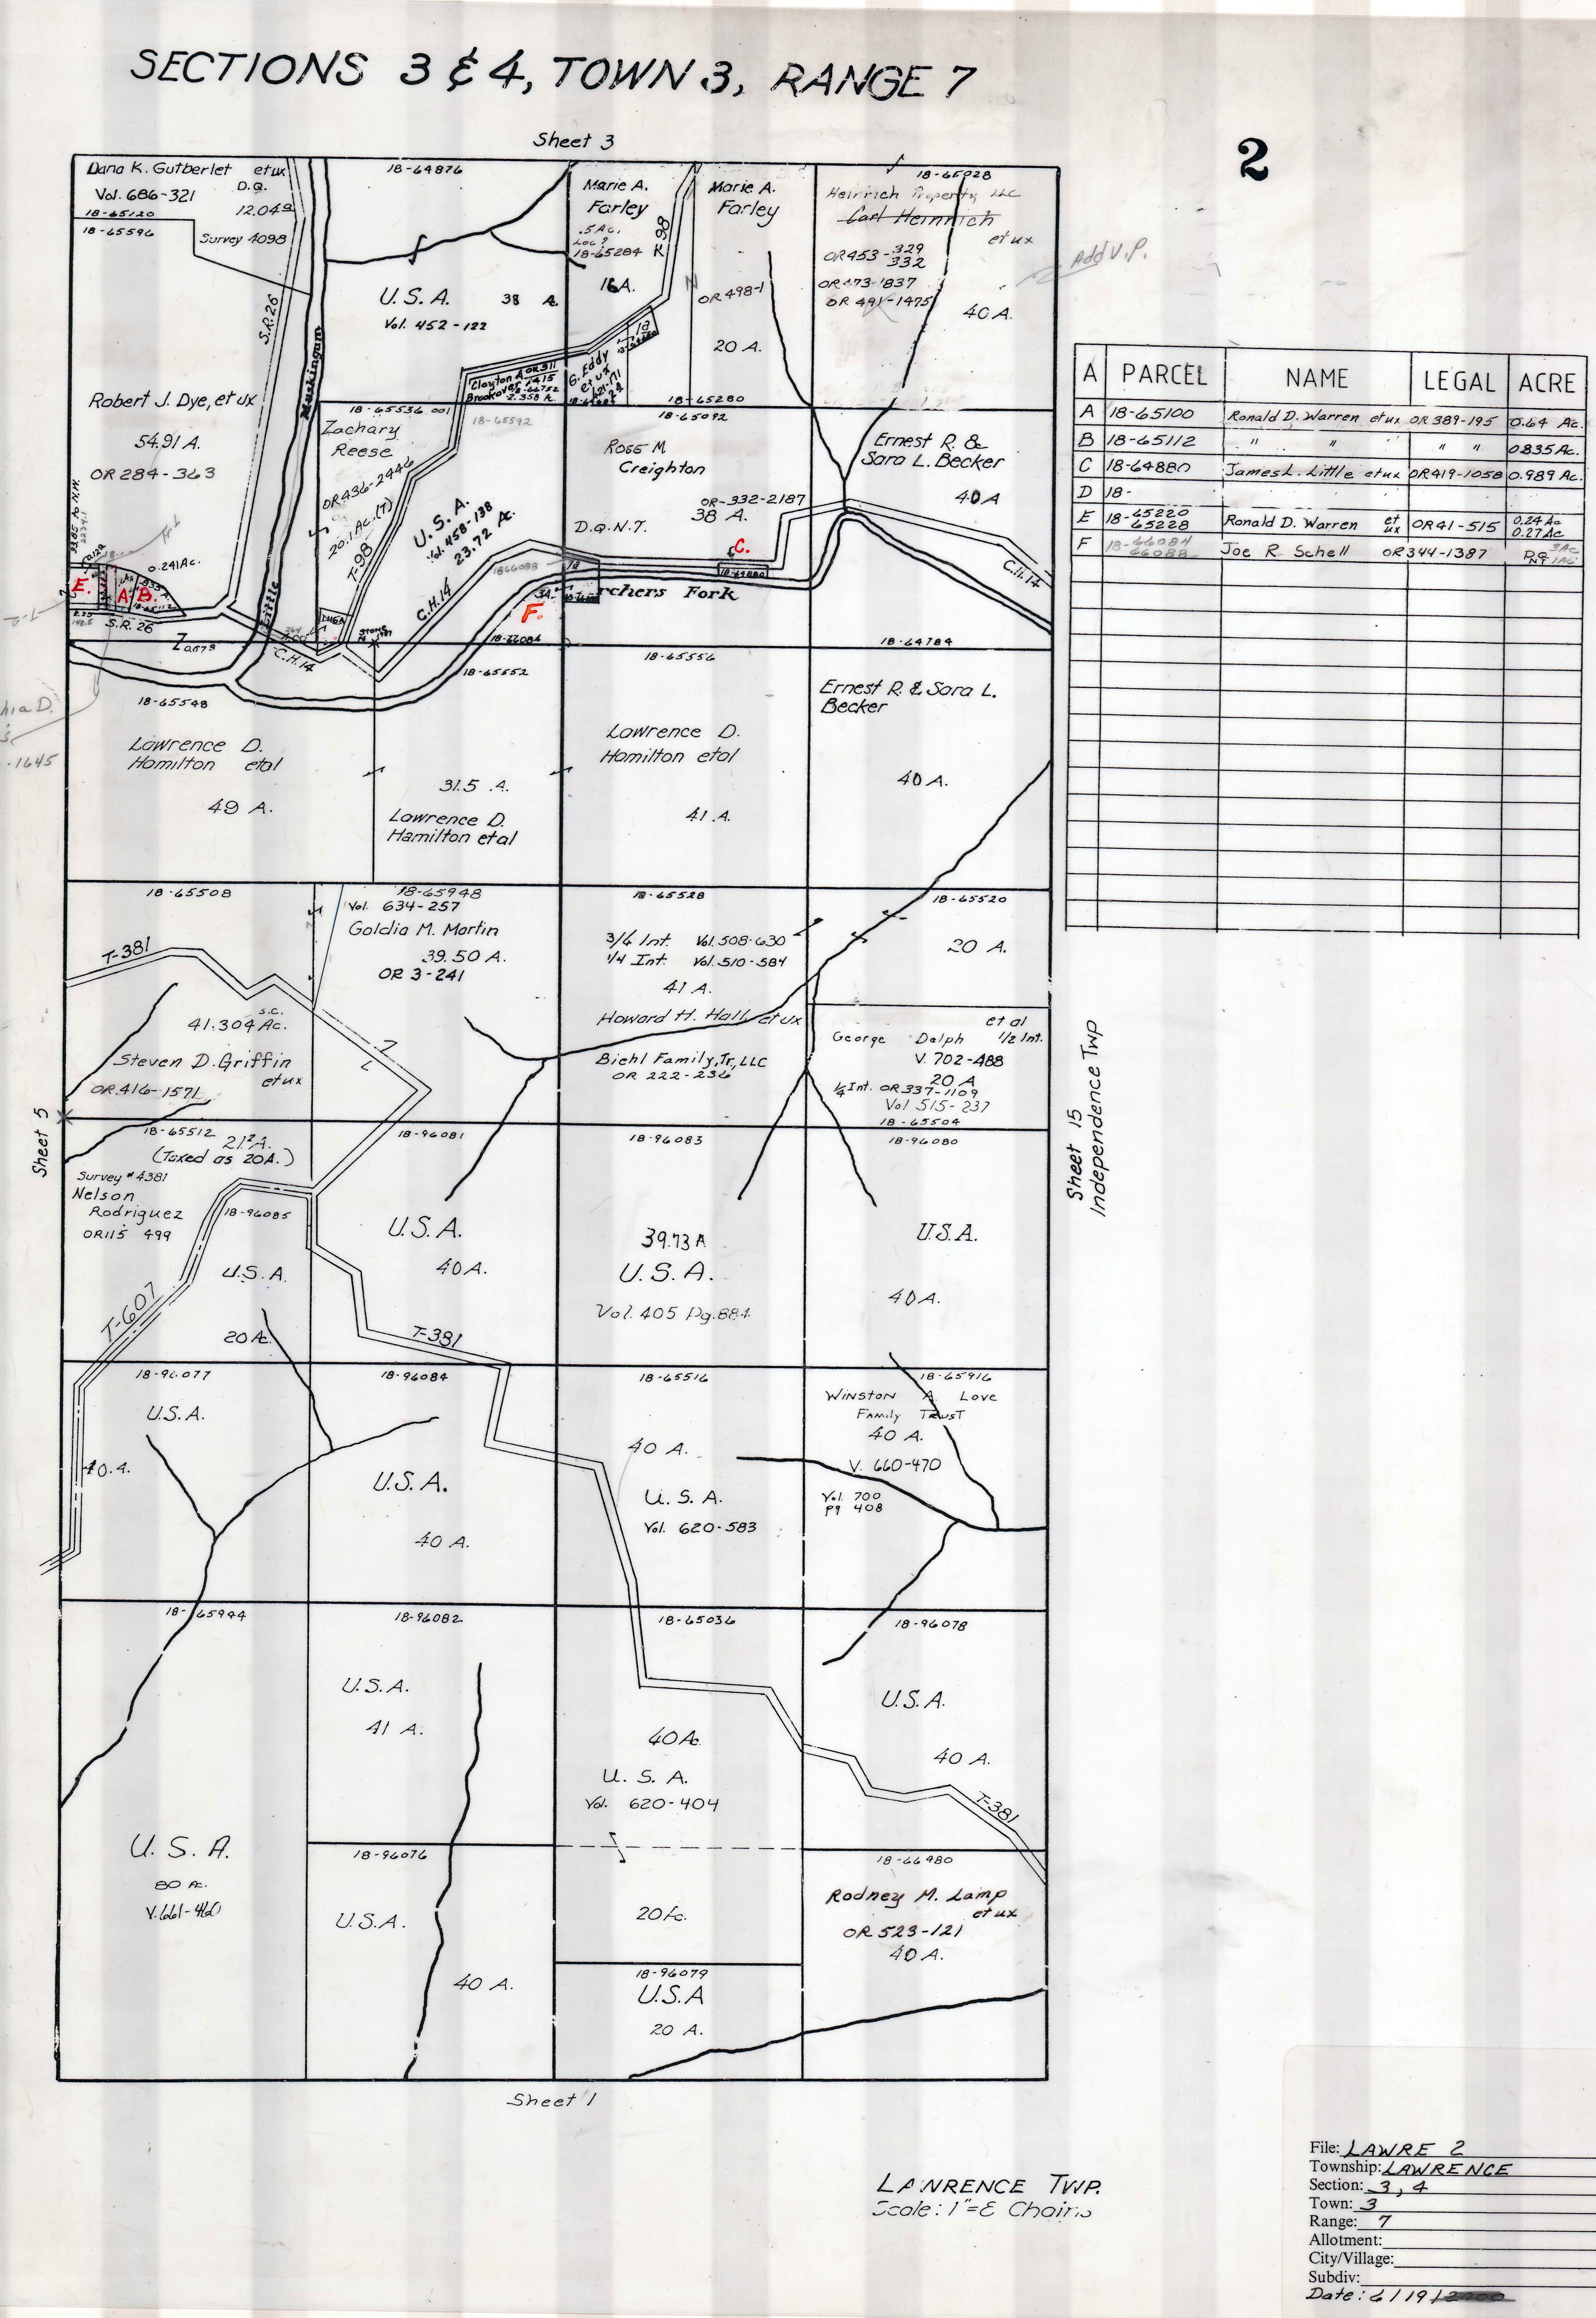 SECTIONS 3 & 4, TOWN 3, RANGE 7
2
Sheet 3
Dana K. Gutberlet et ux
Vol. 686-321 D.Q.
12.049
18-65120
18-65596
Survey 4098
S.R. 26
Robert J. Dye, et ux
54.91 A.
OR 284-363
0.241 Ac.
E.
A.
B.
S.R. 26
Little
Muskingum
18-64876
U.S.A. 38 A.
Vol. 452-122
Marie A.
Farley
.5 Ac.
Loc?
18-65284
16 A.
R 98
Marie A.
Farley
OR 498-1
20 A.
18-65280
18-65928
Heinrich Property LLC
Carl Heinrich
et ux
OR 453-329
332
OR 473-1837
OR 491-1475
40 A.
Add V.P.
Clayton A
Brookover
2.358 A.
G. Eddy
et ux
18-65536 001
Zachary
Reese
OR 436-2446
20.1 Ac. (T)
T-98
18-65592
U.S.A.
Vol. 458-138
23.72 Ac.
C.H. 14
18-65092
Rose M.
Creighton
OR-332-2187
38 A.
D.Q.N.T.
C.
18-64880
Archers Fork
F.
3A.
Ernest R. &
Sara L. Becker
40 A
C.H. 14
C.H. 14
18-65548
Lawrence D.
Hamilton et al
49 A.
18-65552
31.5 A.
Lawrence D.
Hamilton et al
18-65556
Lawrence D.
Hamilton et al
41 A.
18-64784
Ernest R. & Sara L.
Becker
40 A.
18-65508
T-381
41.304 Ac. S.C.
Steven D. Griffin
et ux
OR. 416-1571
18-65948
Vol. 634-257
Goldia M. Martin
39.50 A.
OR 3-241
18-65528
3/4 Int. Vol. 508-630
1/4 Int. Vol. 510-584
41 A.
Howard H. Hall et ux
Biehl Family, Tr, LLC
OR 222-236
18-65520
20 A.
et al
George Dalph 1/2 Int.
V. 702-488
20 A
1/4 Int. OR 337-1109
Vol 515-237
18-65504
Sheet 5
Sheet 15
Independence Twp
18-65512
21.2 A.
(Taxed as 20 A.)
Survey #4381
Nelson
Rodriguez
OR 115 499
18-96085
U.S.A.
20 Ac.
T-607
18-96081
U.S.A.
40 A.
T-381
18-96083
39.73 A
U.S.A.
Vol. 405 Pg. 884
18-96080
U.S.A.
40 A.
18-96077
U.S.A.
40 A.
18-96084
U.S.A.
40 A.
18-65516
40 A.
U.S.A.
Vol. 620-583
18-65916
Winston A Love
Family Trust
40 A.
V. 660-470
Vol. 700
Pg 408
18-65944
U.S.A.
80 Ac.
V. 661-460
18-96082
U.S.A.
41 A.
18-65036
40 Ac.
U.S.A.
Vol. 620-404
20 Ac.
18-96078
U.S.A.
40 A.
T-381
18-96076
U.S.A.
40 A.
18-96079
U.S.A
20 A.
18-66980
Rodney M. Lamp
et ux
OR 523-121
40 A.
Sheet 1
A PARCEL NAME LEGAL ACRE
A 18-65100 Ronald D. Warren et ux OR 389-195 0.64 Ac.
B 18-65112 " " " " 0.835 Ac.
C 18-64880 James L. Little et ux OR 419-1058 0.989 Ac.
D 18-
E 18-65220 65228 Ronald D. Warren et ux OR 41-515 0.24 Ac 0.27 Ac
F 18-66084 66088 Joe R. Schell OR 344-1387
LAWRENCE TWP.
Scale: 1"=8 Chains
File: LAWRE 2
Township: LAWRENCE
Section: 3, 4
Town: 3
Range: 7
Allotment:
City/Village:
Subdiv:
Date: 6/19/